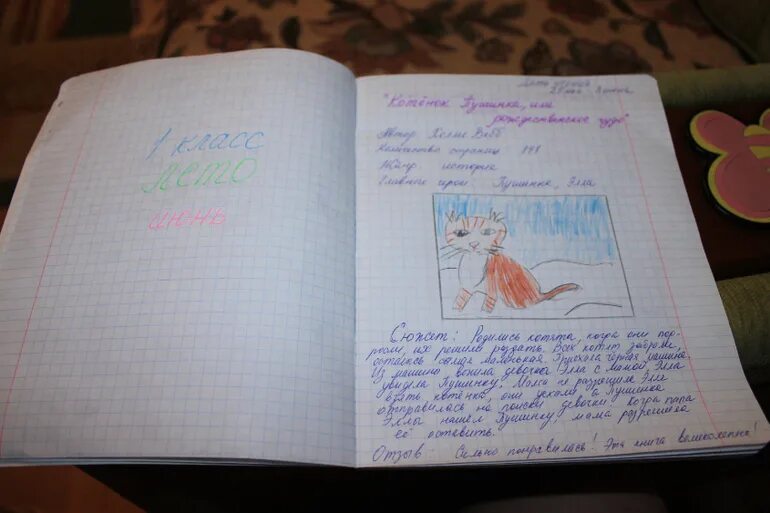 1 класс
лето
июнь
Дата чтения
28 мая - 3 июня
"Котёнок Пушинка, или
рождественское чудо"
Автор Холли Вебб
Количество страниц 141
Жанр история
Главные герои: Пушинка, Элла
Сюжет: Родились котята, когда они под-
росли, их решили раздать. Всех котят забрали,
осталась самая маленькая. Приехала чёрная машина.
Из машины вышла девочка Элла с мамой. Элла
увидела Пушинку. Мама не разрешила Элле
взять котёнка, они уехали а Пушинка
отправилась на поиски девочки. Когда папа
Эллы нашёл Пушинку, мама разрешила
её оставить.
Отзыв: Сильно понравилась! Эта книга великолепна!